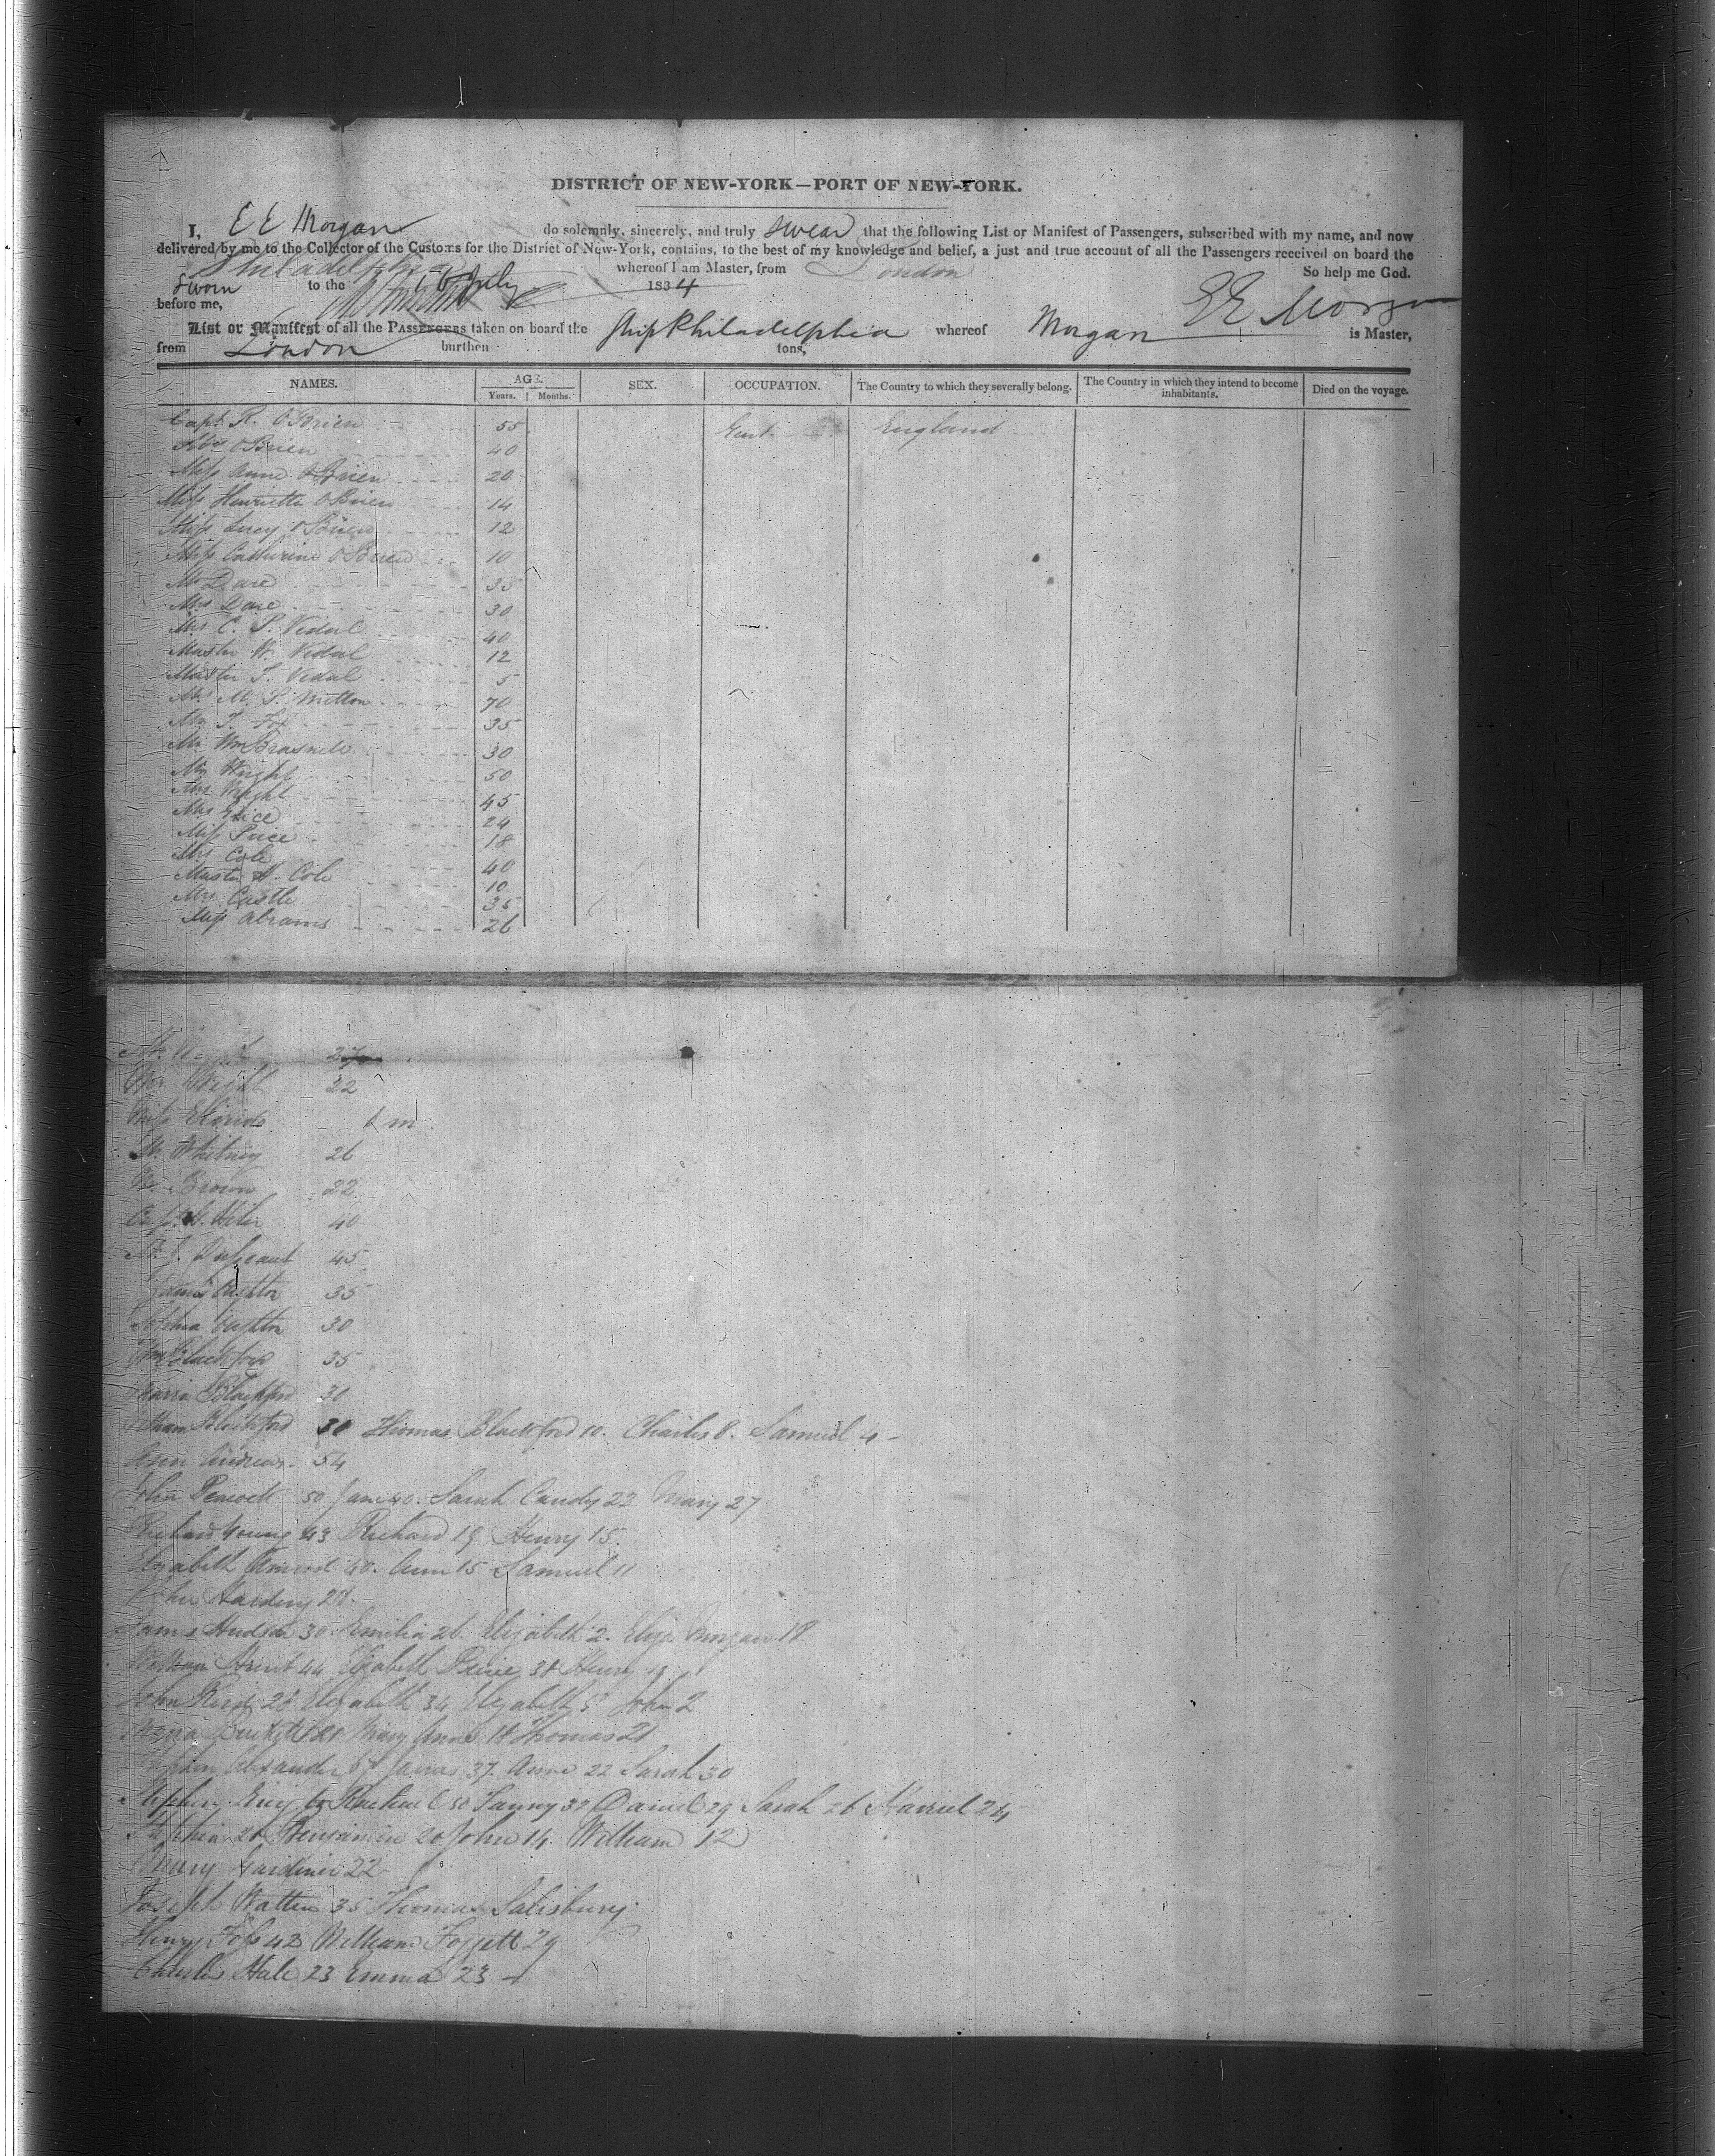 DISTRICT OF NEW-YORK—PORT OF NEW-YORK.
I, E E Morgan do solemnly, sincerely, and truly swear that the following List or Manifest of Passengers, subscribed with my name, and now
delivered by me to the Collector of the Customs for the District of New-York, contains, to the best of my knowledge and belief, a just and true account of all the Passengers received on board the
Philadelphia whereof I am Master, from London So help me God.
Sworn to the 16 July 1834
before me, E E Morgan
List or Manifest of all the PASSENGERS taken on board the Ship Philadelphia whereof Morgan is Master,
from London burthen tons,
NAMES. AGE. SEX. OCCUPATION. The Country to which they severally belong. The Country in which they intend to become inhabitants. Died on the voyage.
Years. Months.
Capt. R. OBrien 55 Gent England
OBrien 40
Miss Anne OBrien 20
Miss Henrietta OBrien 14
Miss Lucy OBrien 12
Miss Catherine OBrien 10
Mr Dare 35
Mrs Dare 30
Mrs C. P. Vidal 40
Master W. Vidal 12
Master T. Vidal 5
M. P. Mitton 70
Mr T. Fox 35
Mr Wm 30
Mr Wright 50
Mrs Wright 45
Mrs 24
Miss Price 18
Mrs Cole 40
Master H. Cole 10
Mrs Castle 35
Miss Abrams 26
Mrs Wright 22
Miss m.
Mr Whitney 26
Mr Brown 22
Capt. 40
Mr J. 45
James 35
Sophia 30
Wm Blackford 35
Maria Blackford 30
Blackford Thomas Blackford 10. Charles 8. Samuel 4
Ann Andrews 54
John Peacock 50 Jane 40. Sarah Candy 23 Mary 27
Richard Young 43 Richard 19 Henry 15.
Elizabeth 40. Ann 15 Samuel 11
John Harding 28.
James Hudson 30 Emilia 26. Elizabeth 2. Eliza Morgan 18
William 44 Elizabeth 38 Henry 19
John 28 Elizabeth 34 Elizabeth 5 John 2
Mary Anne 18 Thomas 21
Alexander 67 James 37. Anne 22 Sarah 30
Stephen Rachael 50 Fanny 32 Daniel 29 Sarah 26 Harriet 24
Sophia Benjamin 20 John 14. William 12
Mary Gardiner 22
Joseph Watten 35 Thomas Salisbury
Henry Foss 42 William Foggett 29
Charles Hale 23 Emma 23